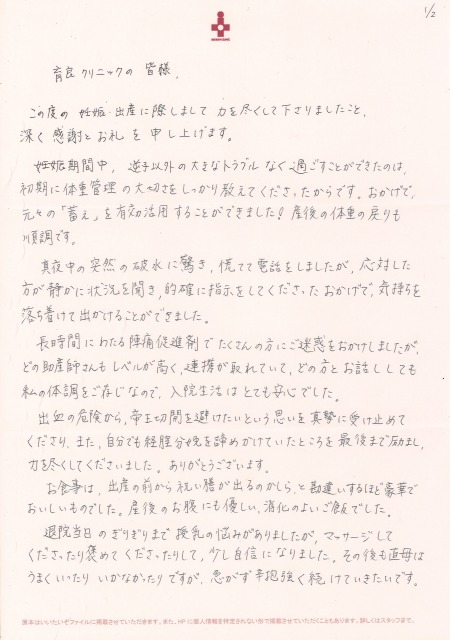 1/2
育良クリニックの 皆様、
この度の 妊娠・出産に際しまして 力を尽くして下さりましたこと、
深く 感謝と お礼 を 申し上げます。
妊娠期間中、逆子以外の大きなトラブル なく 過ごすことができたのは、
初期に体重管理 の 大切さを しっかり教えて くださったからです。おかげで、
元々の「蓄え」を有効活用 することができました! 産後の体重の戻りも
順調です。
真夜中の突然の破水に驚き、慌てて電話をしましたが、応対した
方が静かに状況を聞き、的確に指示をしてくださったおかげで、気持ちを
落ち着けて出かけることができました。
長時間にわたる陣痛促進剤で たくさんの方にご迷惑をおかけしましたが、
どの助産師さんも レベルが高く、連携が取れていて、どの方とお話ししても
私の体調をご存じなので、入院生活は とても安心でした。
出血の危険から、帝王切開を避けたいという思いを真摯に受け止めて
くださり、また、自分でも経膣分娩を諦めかけていたところを最後まで励まし、
力を尽くしてくださいました。ありがとうございます。
お食事は、出産の前から祝い膳が出るのかしら、と勘違いするほど豪華で
おいしいものでした。産後のお腹にも優しい、消化のよいご飯でした。
退院当日のぎりぎりまで授乳の悩みがありましたが、マッサージして
くださったり褒めてくださったりして、少し自信になりました。その後も直母は
うまくいったり いかなかったりですが、急がず辛抱強く続けていきたいです。
原本はいいたいぞファイルに掲載させていただきます。また、HPに個人情報を特定されない形で掲載させていただくこともあります。詳しくはスタッフまで。